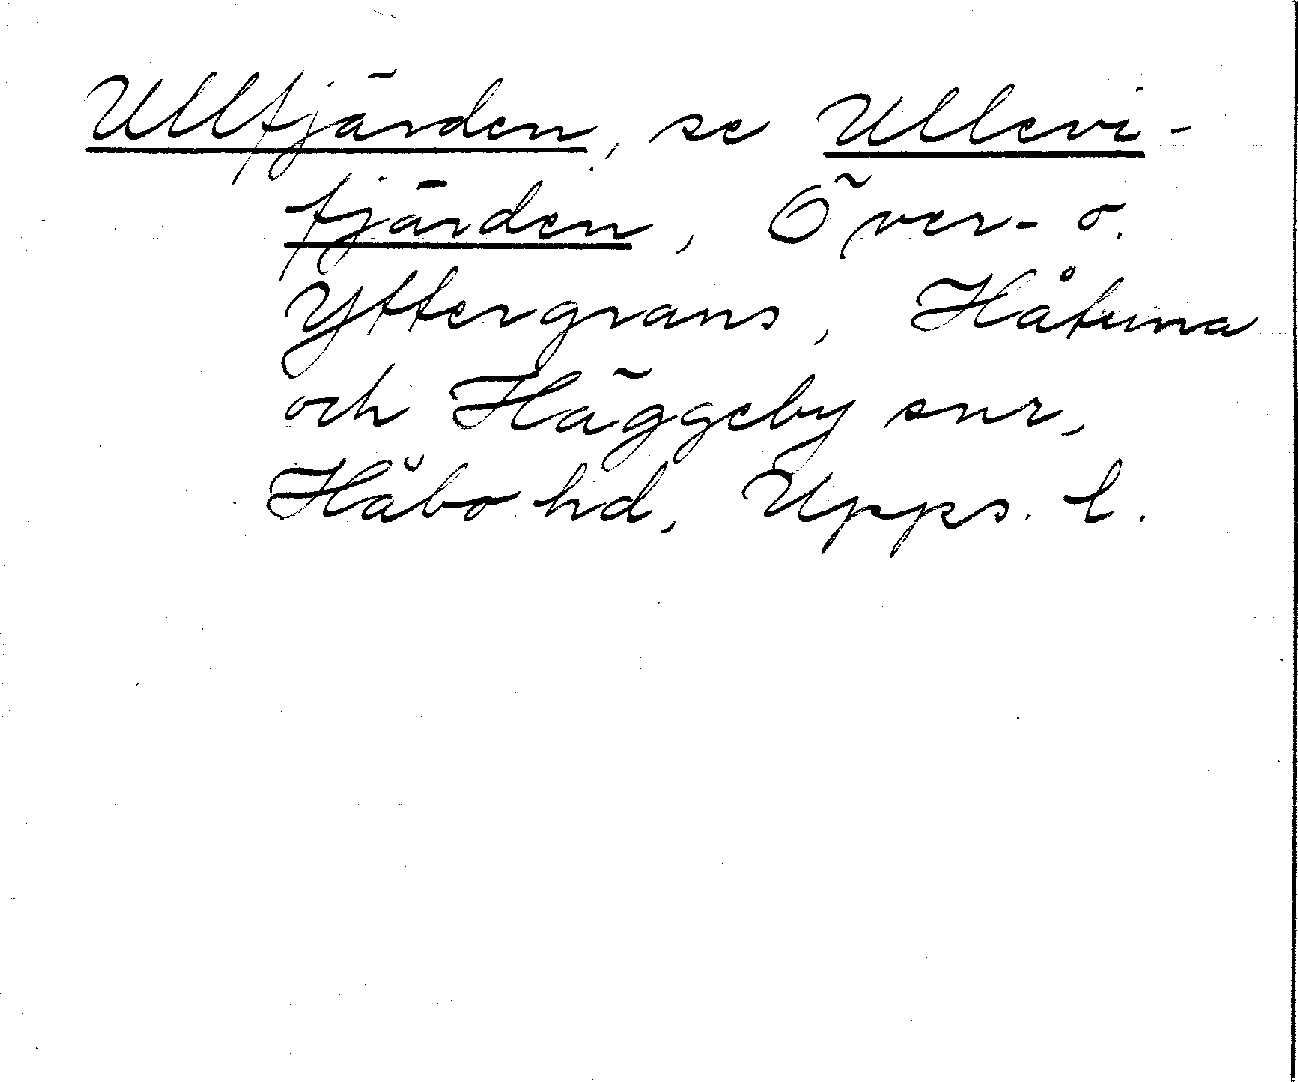 Ullfjärden, se Ullevi-
fjärden, Över- o.
Yttergrans, Håtuna
och Häggeby snr,
Håbo hd, Upps. l.